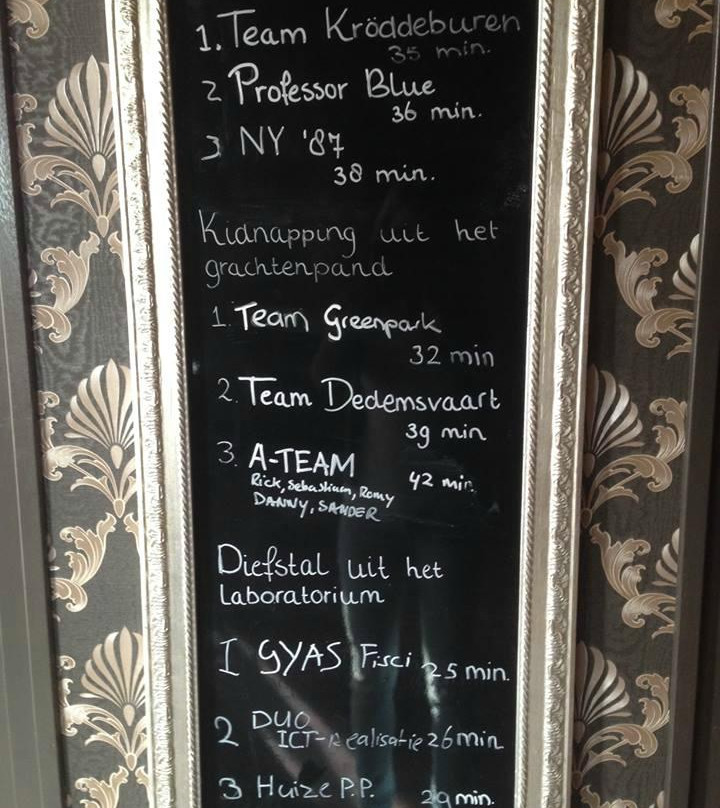 1. Team Kröddeburen
35 min.
2 Professor Blue
36 min.
3 NY '87
38 min.
Kidnapping uit het
grachtenpand
1. Team Greenpark
32 min
2. Team Dedemsvaart
39 min
3. A-TEAM
42 min.
Rick, Sebastiaan, Romy
DANNY, SANDER
Diefstal uit het
Laboratorium
I GYAS Fisci 25 min.
2 DUO
ICT-Realisatie 26 min
3 Huize P.P.
29 min.